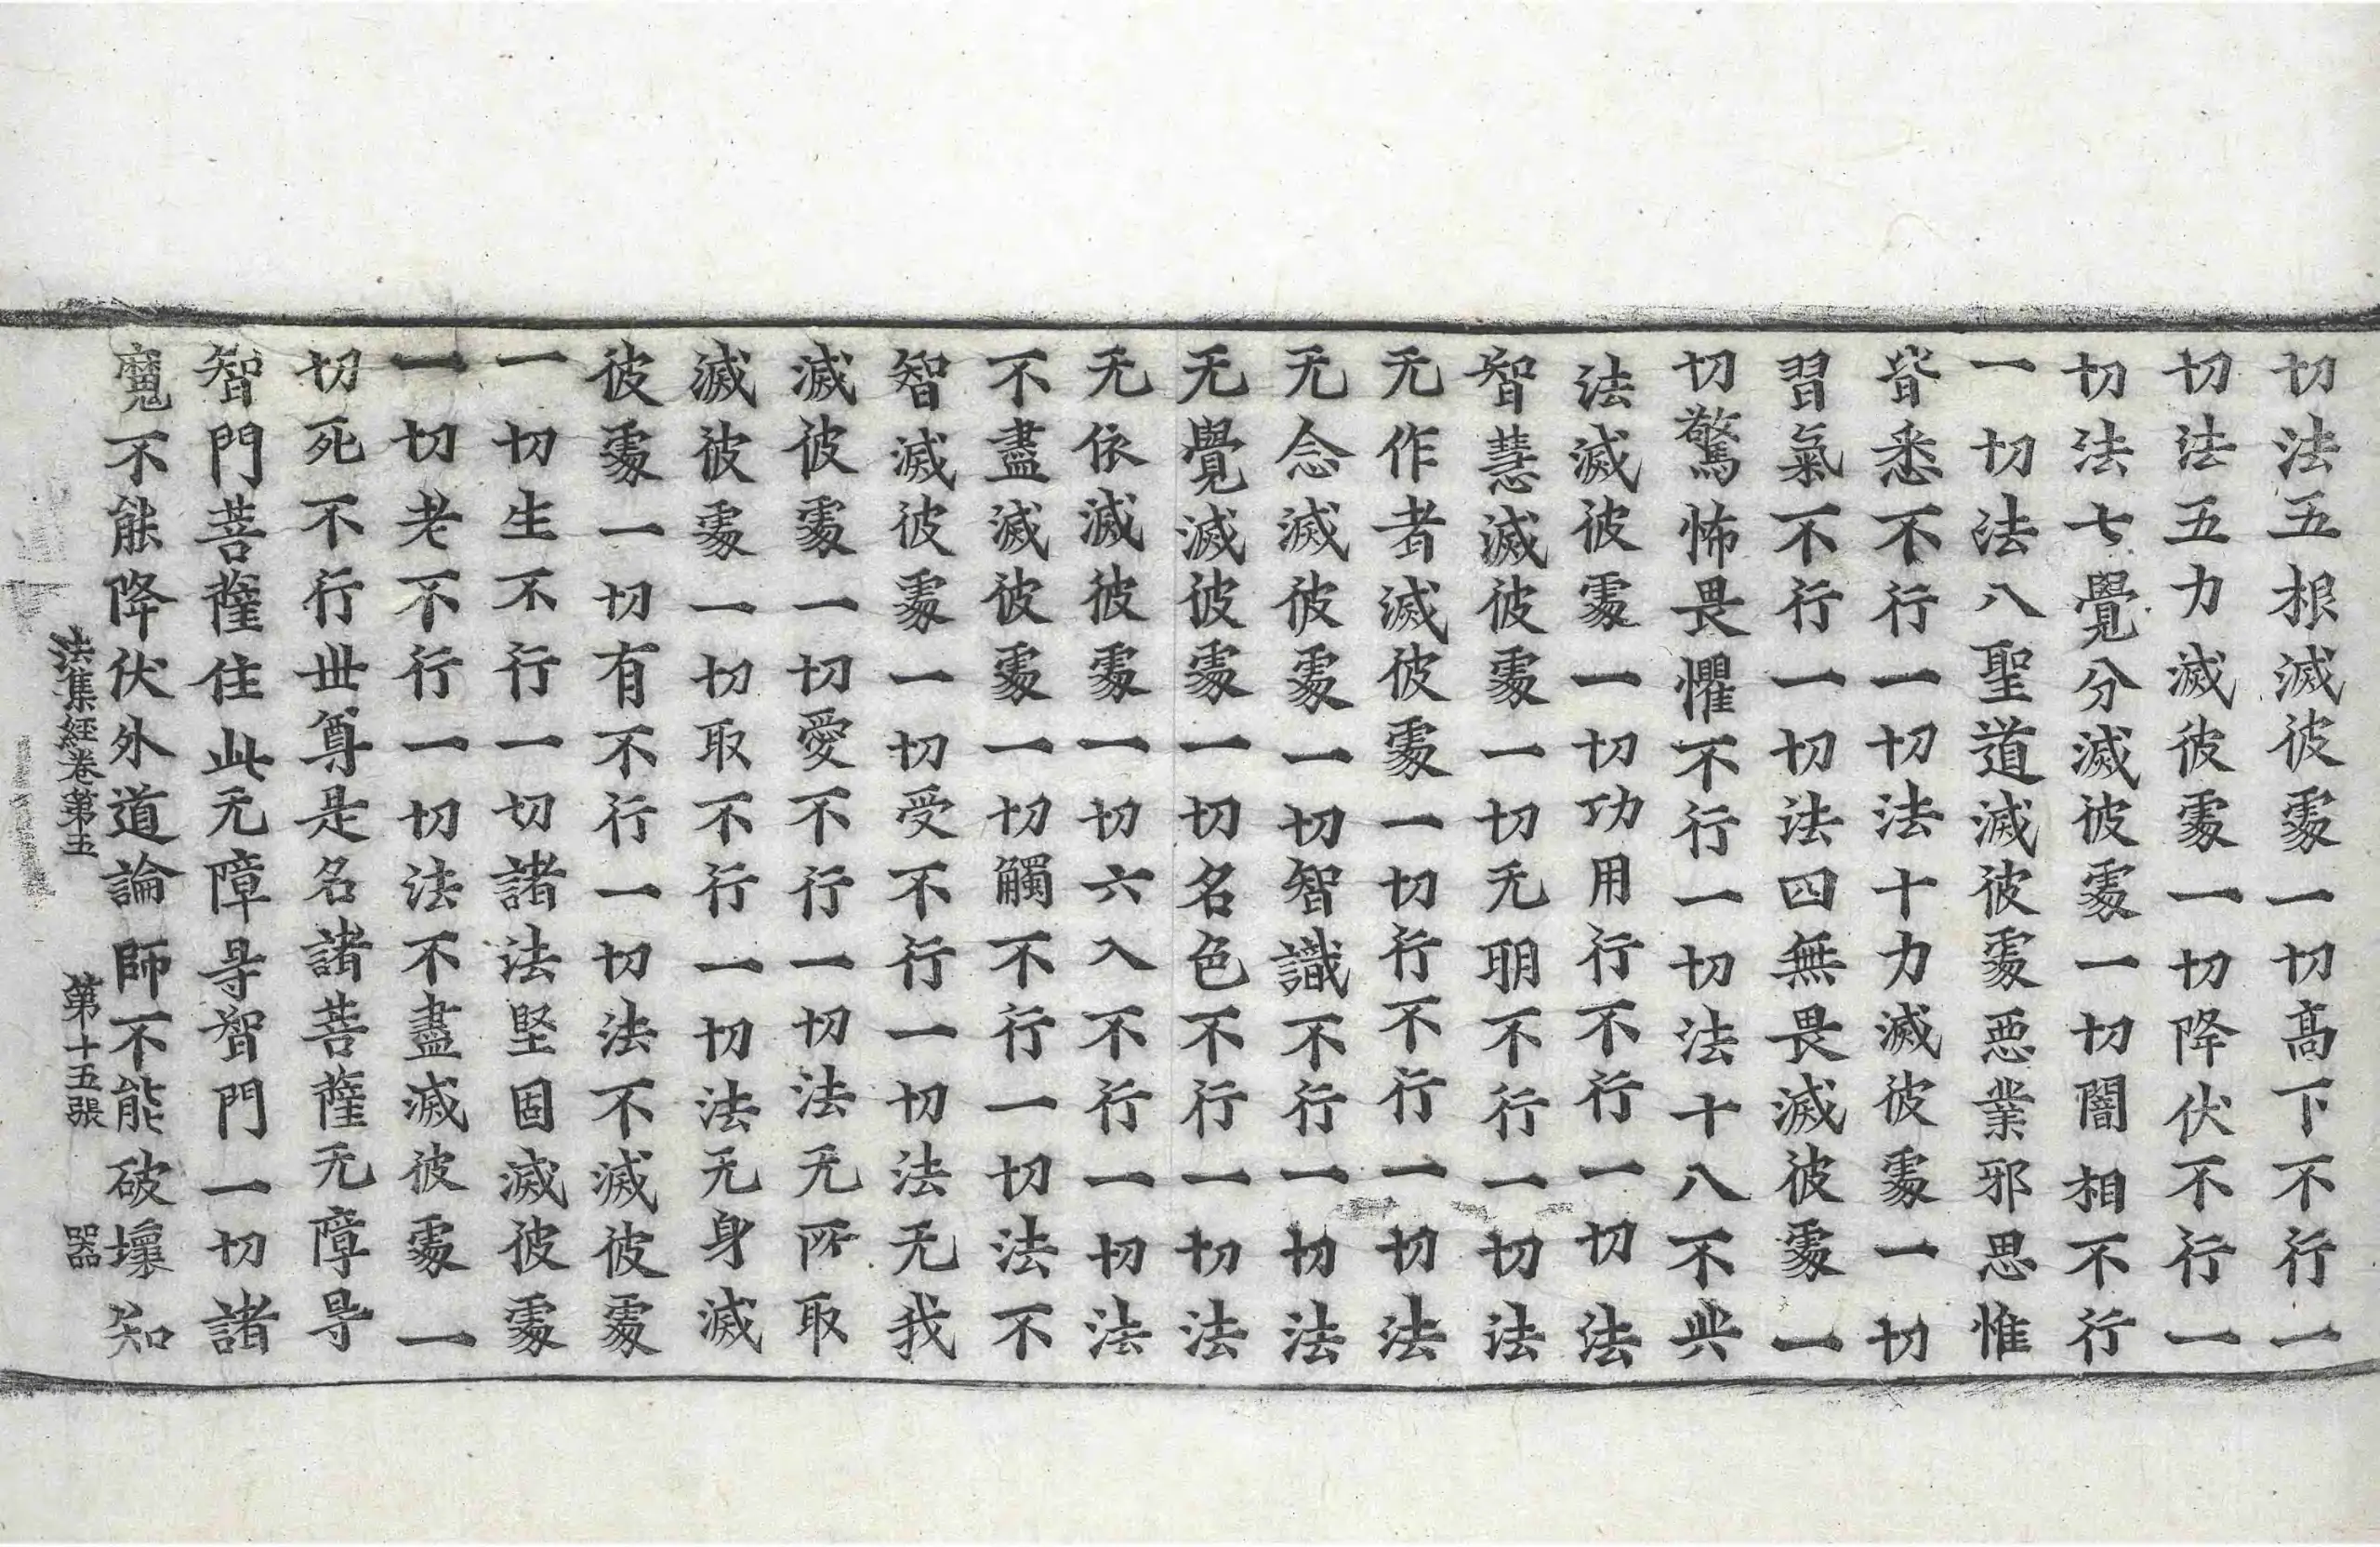 切法五根滅彼䖏一切髙下不行一
切法五力滅彼䖏一切降伏不行一
切法七覺分滅彼䖏一切闇相不行
一切法八聖道滅彼䖏惡業邪思惟
皆悉不行一切法十力滅彼䖏一切
習氣不行一切法四無畏滅彼䖏一
切驚怖畏懼不行一切法十八不共
法滅彼䖏一切功用行不行一切法
智慧滅彼䖏一切无明不行一切法
无作者滅彼䖏一切行不行一切法
无念滅彼䖏一切智識不行一切法
无覺滅彼䖏一切名色不行一切法
无依滅彼䖏一切六入不行一切法
不盡滅彼䖏一切觸不行一切法不
智滅彼䖏一切受不行一切法无我
滅彼䖏一切愛不行一切法无所取
滅彼䖏一切取不行一切法无身滅
彼䖏一切有不行一切法不滅彼䖏
一切生不行一切諸法堅固滅彼䖏
一切老不行一切法不盡滅彼䖏一
切死不行世尊是名諸菩薩无障㝵
智門菩薩住此无障㝵智門一切諸
魔不能降伏外道論師不能破壞知
法集経卷第五 第十五張 器